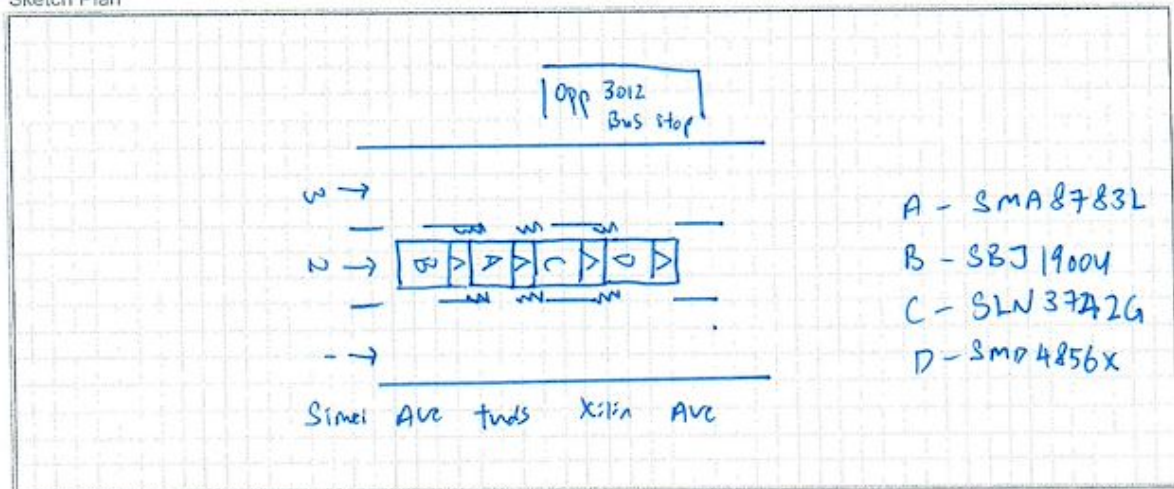 Sketch Plan
Opp 3012
Bus stop
3
2
B A C D
1
Simei Ave twds Xilin Ave
A - SMA8783L
B - SBJ1900U
C - SLN3742G
D - SMD4856X